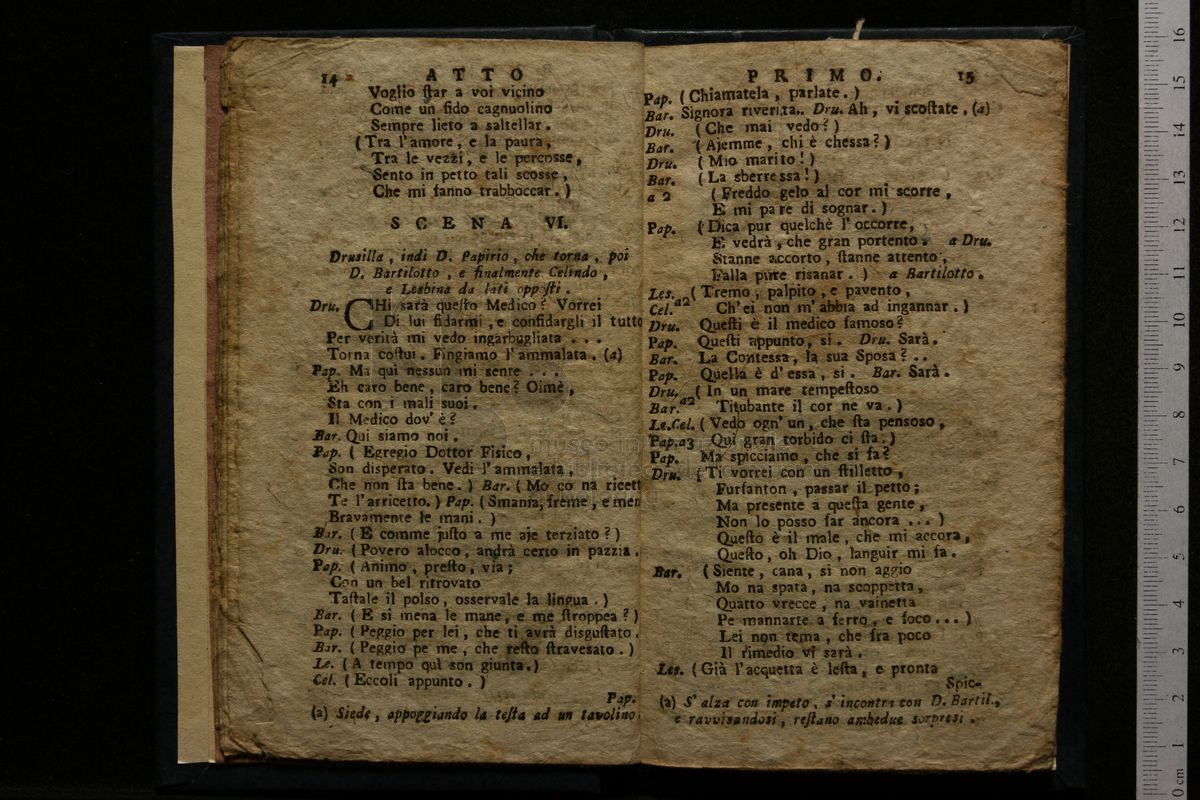 14 ATTO
Voglio ſtar a voi vicino
Come un fido cagnuolino
Sempre lieto a saltellar.
(Tra l'amore, e la paura,
Tra le vezzi, e le percosse,
Sento in petto tali scosse,
Che mi fanno trabboccar.)
SCENA VI.
Drusilla, indi D. Papirio, che torna, poi
D. Bartilotto, e finalmente Celindo,
e Lesbina da lati oppoſti.
Dru. CHi sarà queſto Medico? Vorrei
Di lui fidarmi, e confidargli il tutto
Per verità mi vedo ingarbugliata ...
Torna coſtui. Fingiamo l'ammalata. (a)
Pap. Ma qui nessun mi sente ...
Eh caro bene, caro bene? Oimè,
Sta con i mali suoi.
Il Medico dov'è?
Bar. Qui siamo noi.
Pap. (Egregio Dottor Fisico,
Son disperato. Vedi l'ammalata,
Che non ſta bene.) Bar. (Mo co na ricett
Te l'arricetto.) Pap. (Smania, freme, e men
Bravamente le mani.)
Bar. (E comme juſto a me aje terziato?)
Dru. (Povero alocco, andrà certo in pazzia.
Pap. (Animo, preſto, via;
Con un bel ritrovato
Taſtale il polso, osservale la lingua.)
Bar. (E si mena le mane, e me ſtroppea?)
Pap. (Peggio per lei, che ti avrà disguſtato.
Bar. (Peggio pe me, che reſto ſtravesato.)
Le. (A tempo quì son giunta.)
Cel. (Eccoli appunto.)
Pap.
(a) Siede, appoggiando la teſta ad un tavolino
PRIMO. 15
Pap. (Chiamatela, parlate.)
Bar. Signora riverita.. Dru. Ah, vi scoſtate. (a)
Dru. (Che mai vedo?)
Bar. (Ajemme, chi è chessa?)
Dru. (Mio marito!)
Bar. (La sberressa!)
a 2 (Freddo gelo al cor mi scorre,
E mi pare di sognar.)
Pap. (Dica pur quelchè l'occorre,
E vedrà, che gran portento. a Dru.
Stanne accorto, ſtanne attento,
Falla pure risanar.) a Bartilotto.
Les. (Tremo, palpito, e pavento,
Cel. a2 Ch'ei non m'abbia ad ingannar.)
Dru. Queſti è il medico famoso?
Pap. Queſti appunto, si. Dru. Sarà.
Bar. La Contessa, la sua Sposa? ..
Pap. Quella è d'essa, si. Bar. Sarà.
Dru. (In un mare tempeſtoso
Bar. a2 Titubante il cor ne va.)
Le.Cel. (Vedo ogn'un, che ſta pensoso,
Pap.a3 Qui gran torbido ci ſta.)
Pap. Ma spicciamo, che si fa?
Dru. (Ti vorrei con un ſtilletto,
Furfanton, passar il petto;
Ma presente a queſta gente,
Non lo posso far ancora ...)
Queſto è il male, che mi accora,
Queſto, oh Dio, languir mi fa.
Bar. (Siente, cana, si non aggio
Mo na spata, na scoppetta,
Quatto vrecce, na vainetta
Pe mannarte a ferro, e foco...)
Lei non tema, che fra poco
Il rimedio vi sarà.
Les. (Già l'acquetta è leſta, e pronta
Spic-
(a) S'alza con impeto, s'incontra con D. Bartil.,
e ravvisandosi, reſtano ambedue sorpresi.